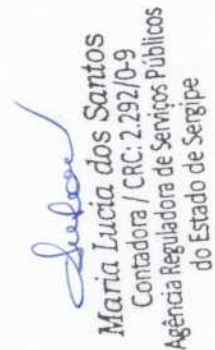 Maria Lucia dos Santos
Contadora / CRC: 2.292/0-9
Agência Reguladora de Serviços Públicos
do Estado de Sergipe